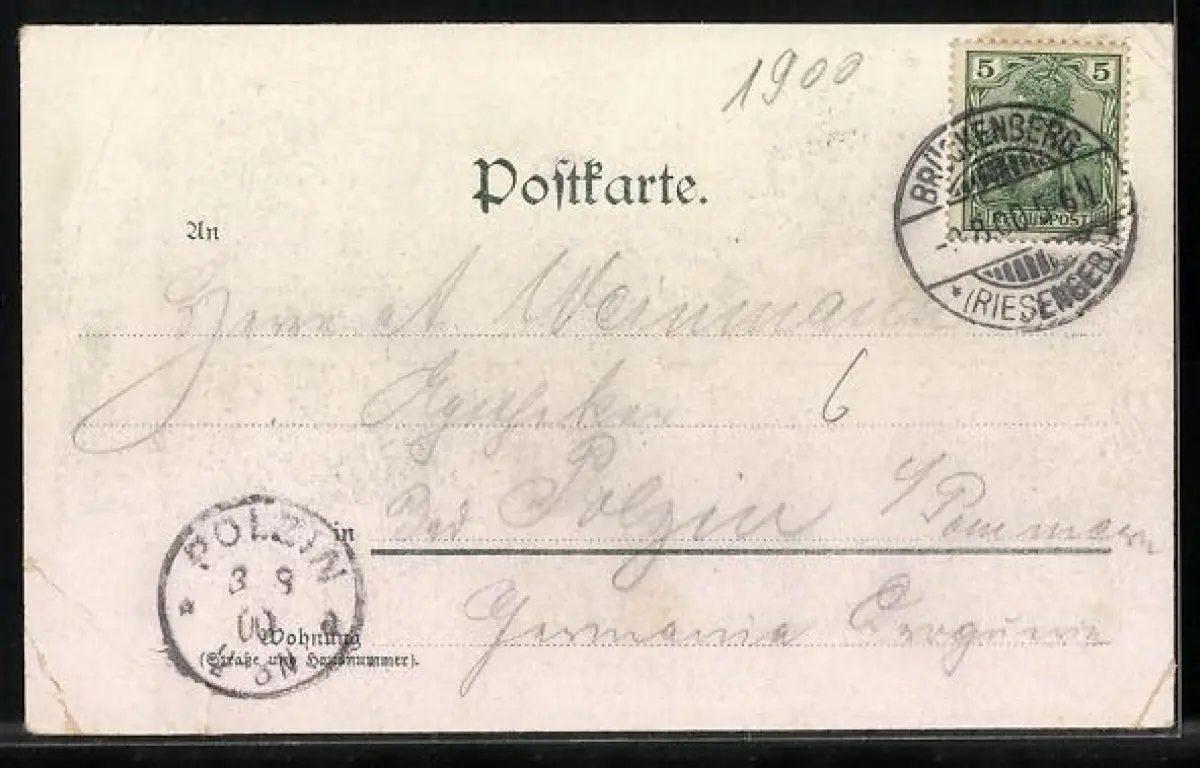 1900
5 5
REICHSPOST
BRÜCKENBERG
8.00 5-6N
* (RIESENGEB.)
Postkarte.
An
Herrn A. Weinmann
Apotheker
6
in Bad Polzin i/Pommern
POLZIN
3 9
00
Wohnung
(Straße und Hausnummer).
Germania Drogerie